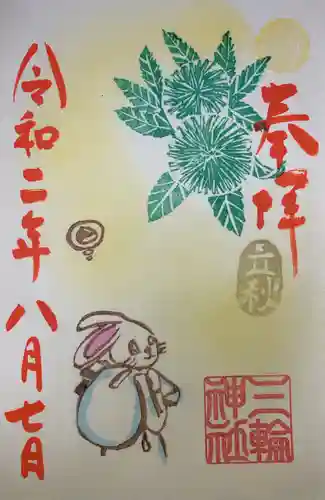 奉拝
立秋
三輪
神社
令和二年
八月七日